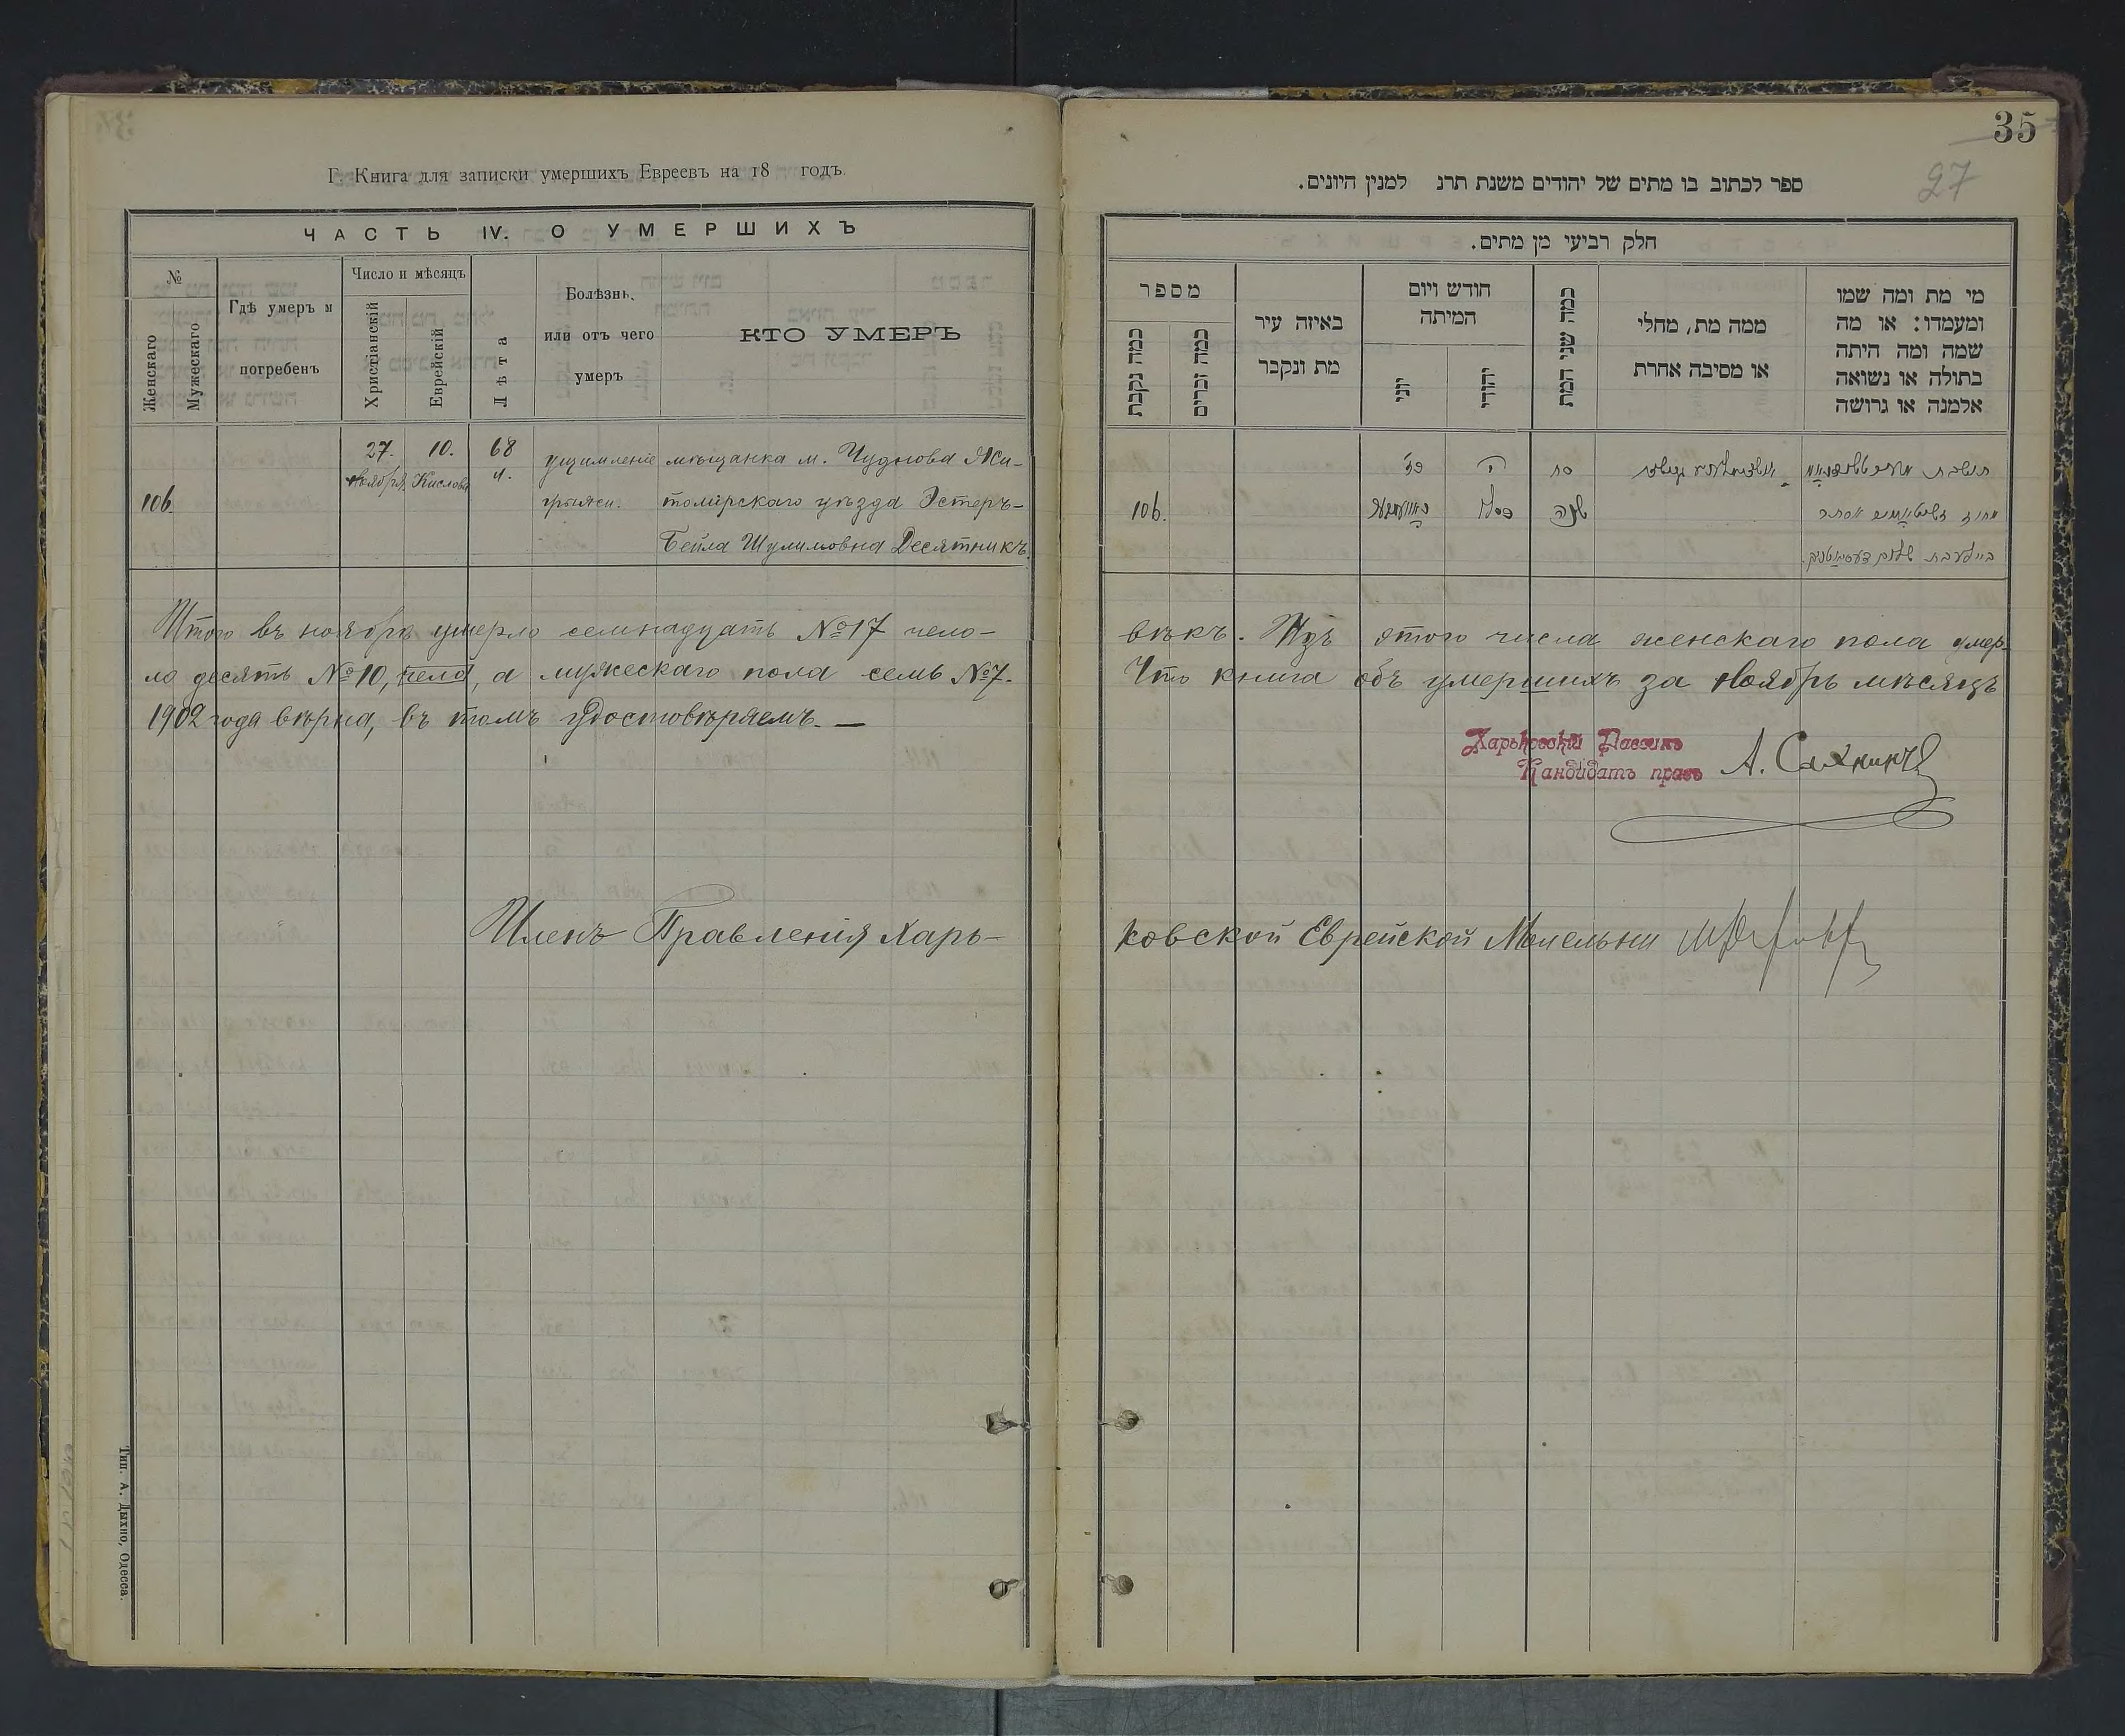 Г. Книга для записки умершихъ Евреевъ на 18 годъ.
ЧАСТЬ IV. О УМЕРШИХЪ
№
Женскаго
Мужескаго
Гдѣ умеръ и
погребенъ
Число и мѣсяцъ
Христіанскій
Еврейскій
Лѣта
Болѣзнь,
или отъ чего
умеръ
КТО УМЕРЪ
27. 10. 68 ущемленіе мѣщанка м. Чуднова Жи-
106. Ноября Кислова л. грыжи. томирскаго уѣзда Эстеръ-
Бейла Шулимовна Десятникъ.
Тип. А. Дыхно, Одесса.
35
27
ספר לכתוב בו מתים של יהודים משנת תרנ למנין היונים.
חלק רביעי מן מתים.
מספר
כמה נקבות
כמה זכרים
באיזה עיר
מת ונקבר
חודש ויום
המיתה
יוני
יהודי
כמה שני המת
ממה מת, מחלי
או מסיבה אחרת
מי מת ומה שמו
ומעמדו: או מה
שמה ומה היתה
בתולה או נשואה
אלמנה או גרושה
תושבת סח י כז
אסתר שנה כסלו 106.
שלום
Итого въ ноябрѣ умерло семнадцать №17 чело-
вѣкъ. Изъ этого числа женскаго пола умер-
ло десять №10, чело, а мужескаго пола семь №7.
Что книга объ умершихъ за Ноябрь мѣсяцъ
1902 года вѣрна, въ томъ удостовѣряемъ. —
Харьковскій Раввинъ
Кандидатъ правъ
Членъ Правленія Харь-
ковской Еврейской Молельни